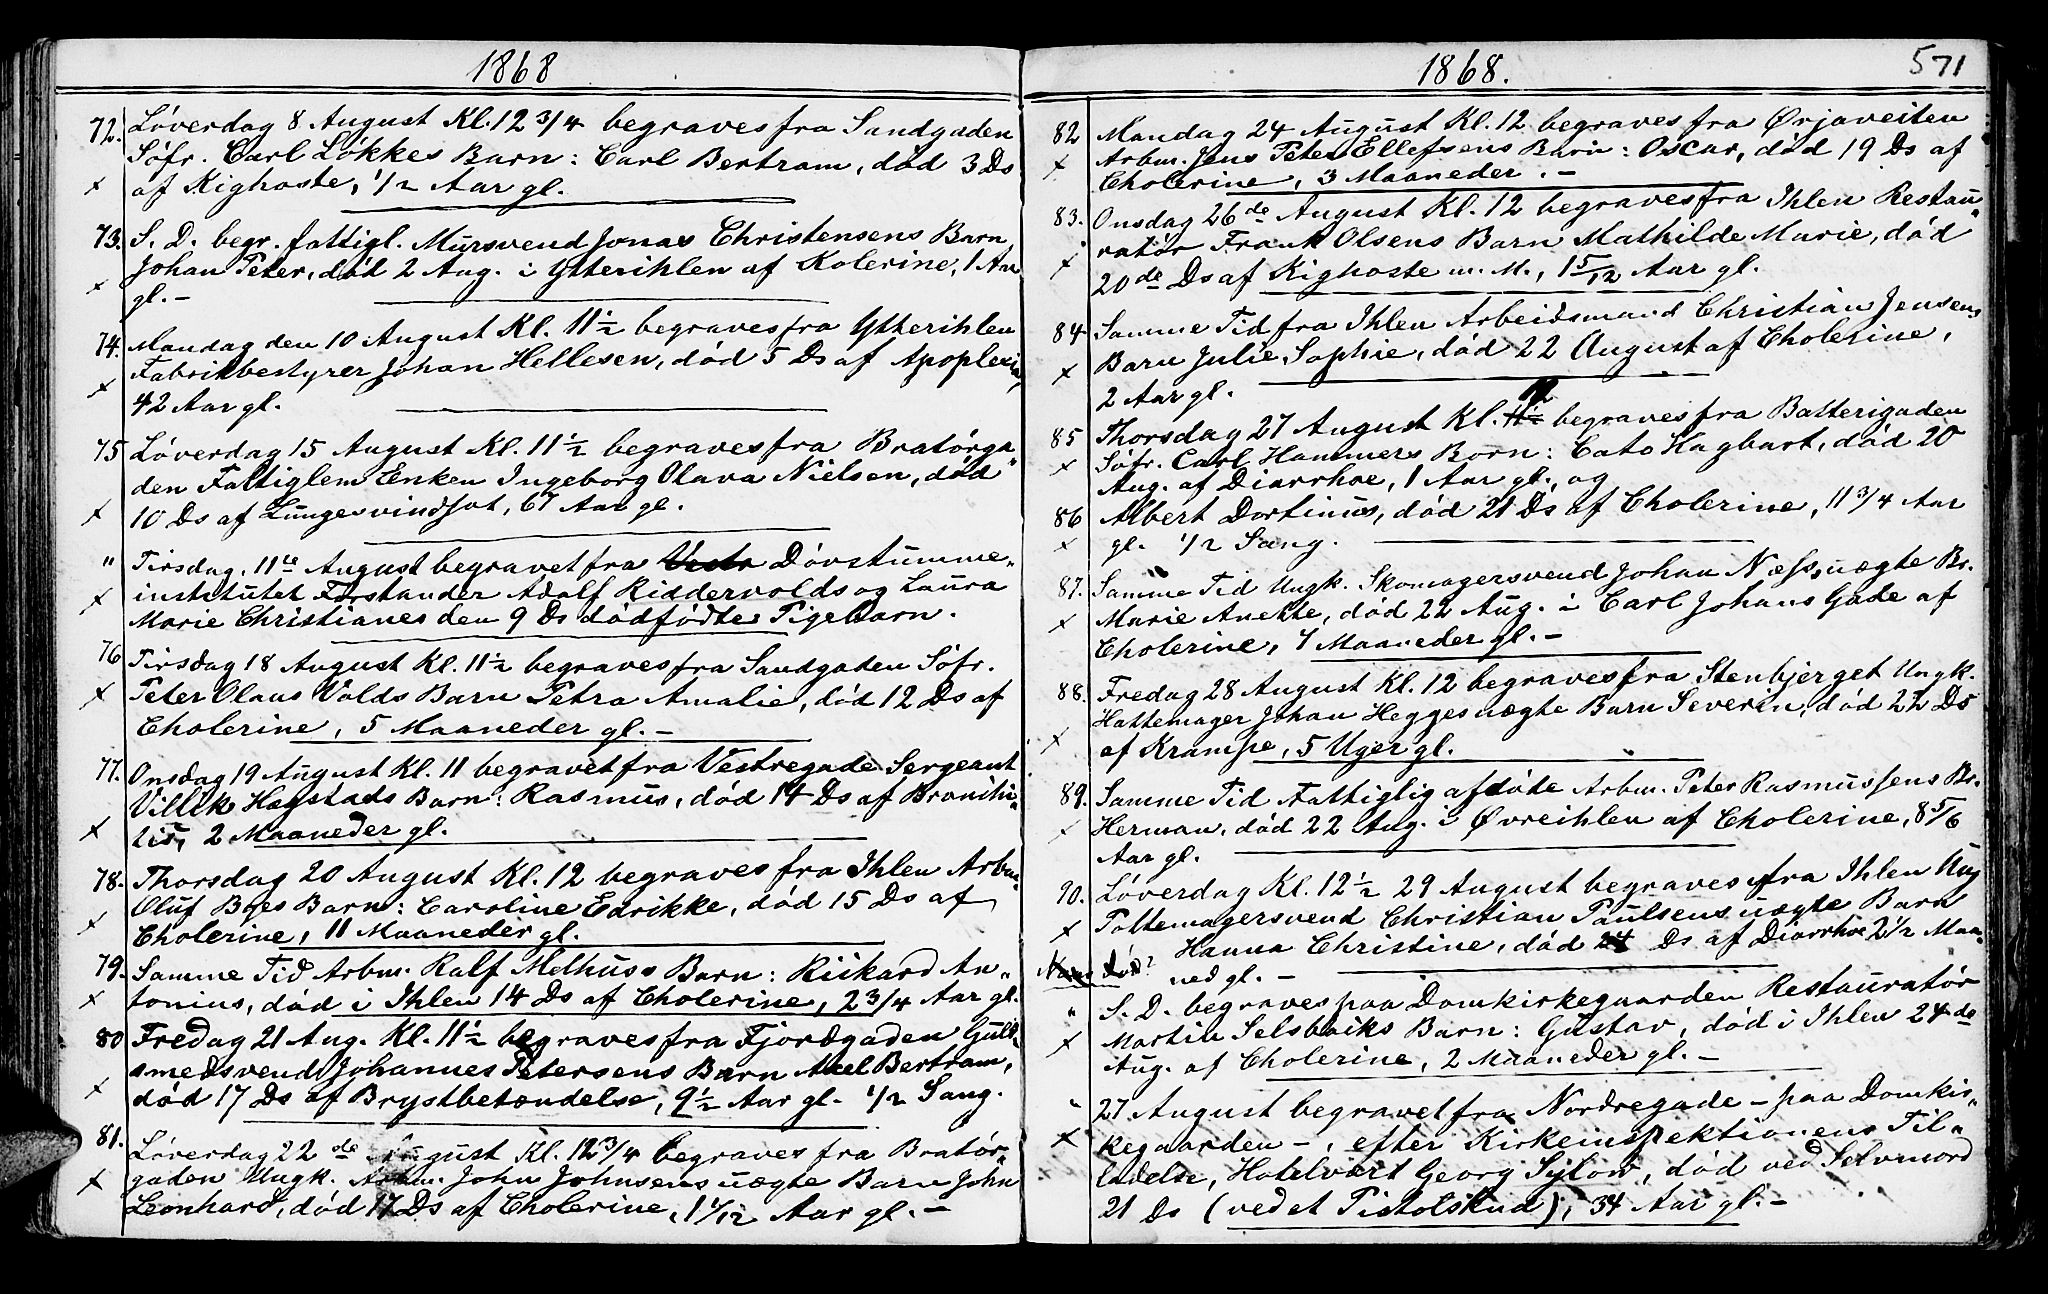 1868
72. Löverdag 8 August Kl. 12 3/4 begraves fra Sandgaden
Söfr. Carl Lökkes Barn: Carl Bertram, död 3 Ds
x af Kighoste, 1/2 Aar gl.
73. S. D. begr. fattigl. Mursvend Jonas Christensens Barn
Johan Peter, död 2 Aug. i Ytterihlen af Kolerine, 1 Aar
x gl. –
74. Mandag den 10 August Kl. 11 1/2 begraves fra Ytterihlen
Fabrikbestyrer Johan Hellesen, död 5 Ds af Apoplexie,
x 42 Aar gl.
75 Löverdag 15 August Kl. 11 1/2 begraves fra Bratörga"
den Fattiglem Enken Ingeborg Olava Nielsen, död
x 10 Ds af Lungesvindsot, 67 Aar gl.
" Tirsdag, 11te August begravet fra Dövstumme"
x institutet Forstander Adolf Riddervolds og Laura
Marie Christianes den 9 Ds dödfödte Pigebarn.
76 Tirsdag 18 August Kl. 11 1/2 begraves fra Sandgaden Söfr.
x Peter Olaus Volds Barn Petra Amalie, död 12 Ds af
Cholerine, 5 Maaneder gl. –
77. Onsdag 19 August Kl. 11 begravet fra Vestregade Sergeant
Villik Hagstads Barn: Rasmus, död 14 Ds af Bronchi"
x tis, 2 Maaneder gl.
78. Thorsdag 20 August Kl. 12 begraves fra Ihlen Arbm.
Oluf Boes Barn: Caroline Edrikke, död 15 Ds af
x Cholerine, 11 Maaneder gl.
79. Samme Tid Arbm. Ralf Melhuss Barn: Rickard An"
x tonius, död i Ihlen 14 Ds af Cholerine, 2 3/4 Aar gl.
80 Fredag 21 Aug. Kl. 11 1/2 begraves fra Fjordgaden Guld"
smedsvend Johannes Petersens Barn Axel Bertram,
x död 17 Ds af Brystbetændelse, 9 1/2 Aar gl. 1/2 Sang.
81. Löverdag 22de August Kl. 12 3/4 begraves fra Bratör"
x gaden Ungk. Arbm. John Johnsens uægte Barn John
Leonhard, död 17 Ds af Cholerine, 1 1/12 Aar gl. –
1868.
571
82 Mandag 24 August Kl. 12 begraves fra Ørjaveiten
x Arbm. Jens Peter Ellefsens Barn: Oscar, död 19 Ds af
Cholerine, 3 Maaneder. –
83. Onsdag 26de August Kl. 12 begraves fra Ihlen Restau"
x ratör Frank Olsens Barn Mathilde Marie, död
20de Ds af Kighoste m. M., 1 5/12 Aar gl.
84 Samme Tid fra Ihlen Arbeidsmand Christian Jensens
x Barn Julie Sophie, död 22 August af Cholerine,
2 Aar gl.
85 Thorsdag 27 August Kl. 11 1/2 12 begraves fra Batterigaden
x Söfr. Carl Hammers Born: Cato Hagbart, död 20
Aug. af Diarrhoe, 1 Aar gl., og
86 Albert Dortinus, död 21 Ds af Cholerine, 11 3/4 Aar
x gl. 1/2 Sang.
87. Samme Tid Ungk. Skomagersvend Johan Næss, uægte Br.
x Marie Anette, död 22 Aug. i Carl Johans Gade af
Cholerine, 7 Maaneder gl. –
88. Fredag 28 August Kl. 12 begraves fra Stenbjerget Ungk.
Hattemager Johan Hegges uægte Barn Severin, död 22 Ds
x af Krampe, 5 Uger gl.
89. Samme Tid Fattiglig afdöde Arbm. Peter Rasmussens Br.
x Herman, död 22 Aug. i Øvreihlen af Cholerine, 8 5/6
Aar gl.
90. Löverdag Kl. 12 1/2 29 August begraves fra Ihlen Ung
x Pottemagersvend Christian Paulsens uægte Barn
Hanna Christine, död 24 Ds af Diarrhoe 2 1/2 Maa"
Naar död? ned gl. –
" S. D. begraves paa Domkirkegaarden Restauratör
x Martin Selsbaks Barn: Gustav, död i Ihlen 24de
Aug. af Cholerine, 2 Maaneder gl. –
" 27 August begravet fra Nordregade – paa Domkir"
x kegaarden –, efter Kirkeinspektionens Til"
ladelse, Hotelvært Georg Sylow, död ved Selvmord
21 Ds (ved et Pistolskud), 34 Aar gl. –